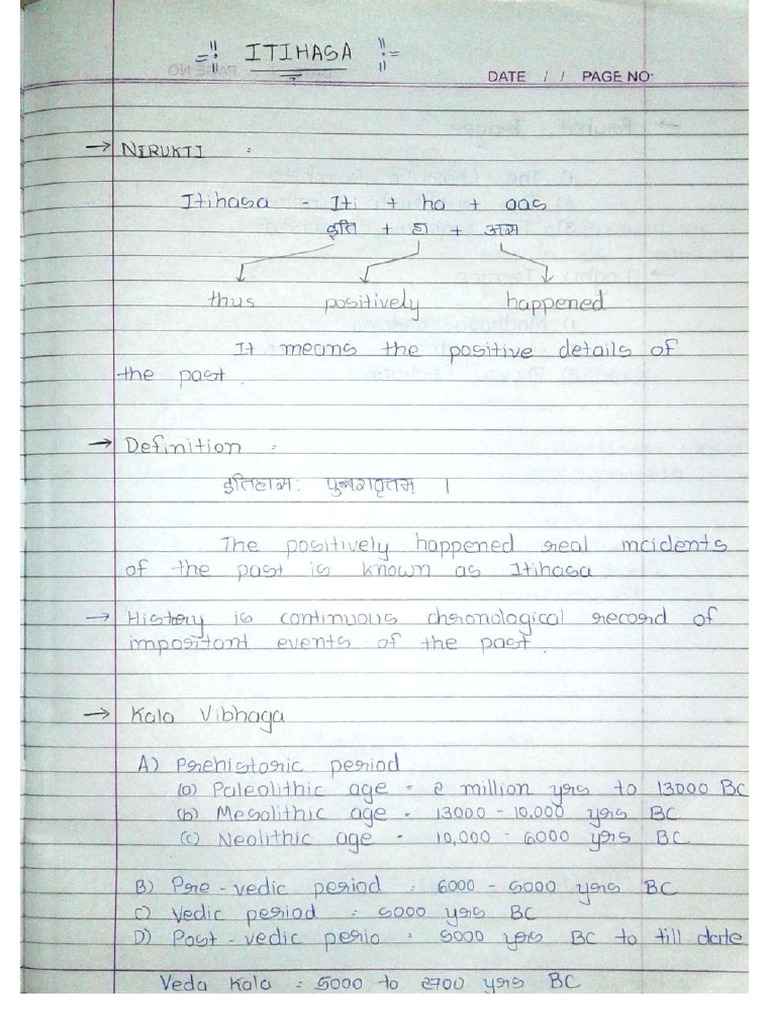 =!! ITIHASA !!=
DATE / / PAGE NO:
→ NIRUKTI :
Itihasa - Iti + ha + aas
इति + हा + अस
thus positively happened
It means the positive details of
the past.
→ Definition :
इतिहासः पुरावृतम् ।
The positively happened real incidents
of the past is known as Itihasa
→ History is continuous chronological record of
important events of the past.
→ Kala Vibhaga
A) Prehistoric period
(a) Paleolithic age = 2 million yrs to 13000 BC
(b) Mesolithic age = 13000 - 10,000 yrs BC
(c) Neolithic age = 10,000 - 6000 yrs BC
B) Pre-vedic period = 6000 - 5000 yrs BC
C) Vedic period = 5000 yrs BC
D) Post-vedic perio = 5000 yrs BC to till date
Veda Kala = 5000 to 2700 yrs BC